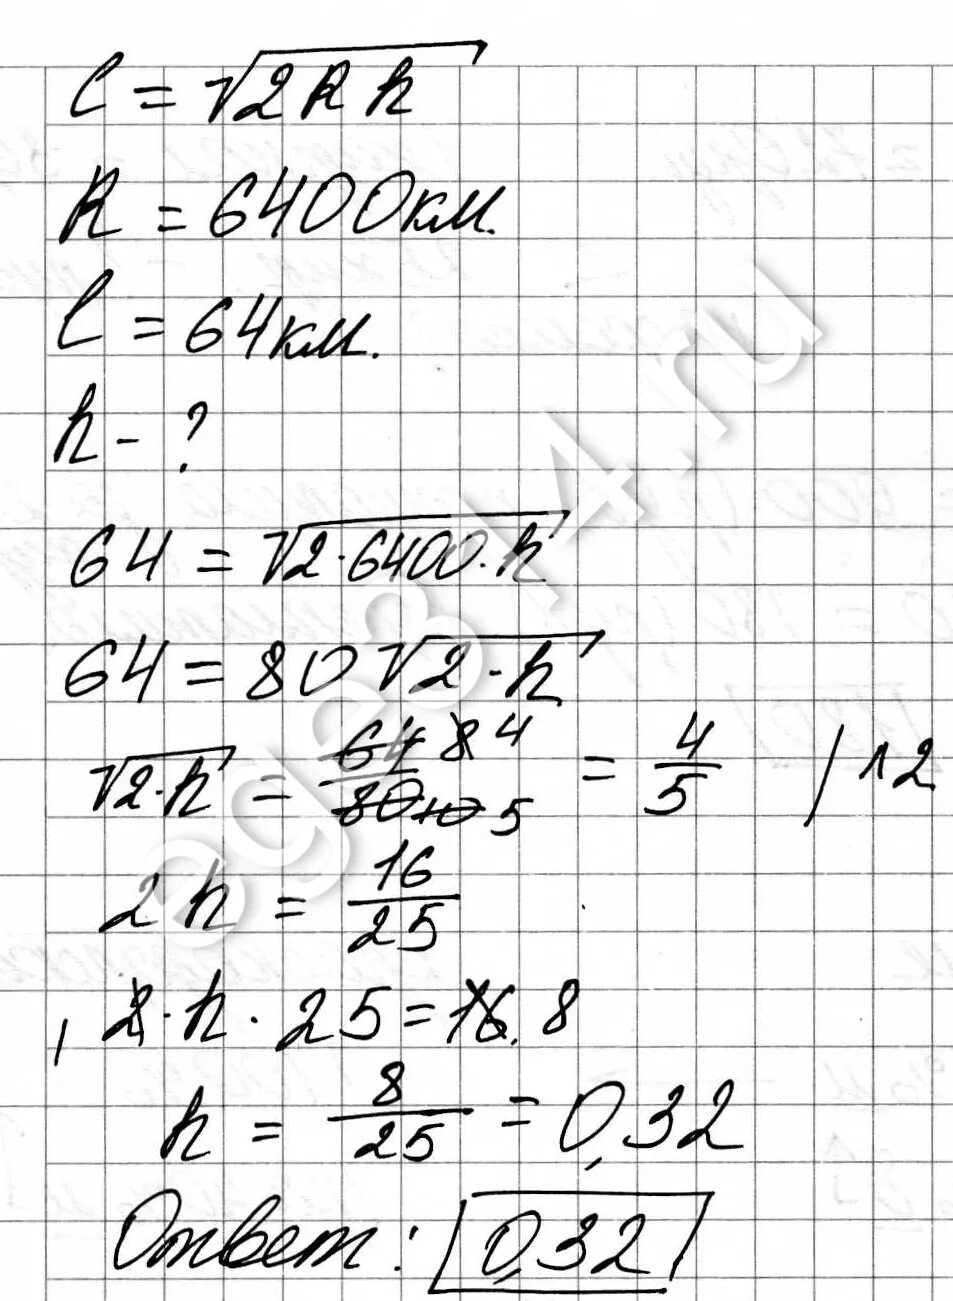 l = √2Rh
R = 6400км.
l = 64км.
h - ?
64 = √2·6400·h
64 = 80√2·h
√2·h = 64 8 4 / 80 10 5 = 4/5 | ^2
2h = 16/25
1 2·h·25 = 16. 8
h = 8/25 = 0,32
Ответ: 0,32
ege314.ru